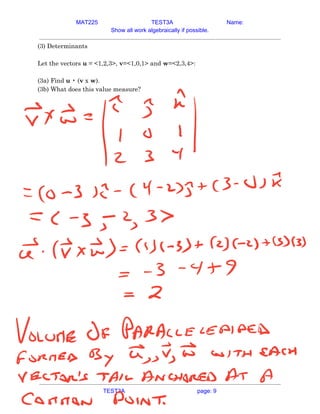 MAT225 TEST3A Name:
Show all work algebraically if possible.
(3) Determinants
Let the vectors u = <1,2,3>, v=<1,0,1> and w=<2,3,4>:
(3a) Find u • (v x w).
(3b) What does this value measure?
v⃗ x w⃗ = | î ĵ k̂ |
| 1 0 1 |
| 2 3 4 |
= (0-3)î - (4-2)ĵ + (3-0)k̂
= < -3, -2, 3>
u⃗ · (v⃗ x w⃗) = (1)(-3) + (2)(-2) + (3)(3)
= -3 -4+9
= 2
VOLUME OF PARALLELEPIPED
FORMED BY u⃗, v⃗, w⃗ WITH EACH
VECTOR'S TAIL ANCHORED AT A
TEST3A page: 9
COMMON POINT.